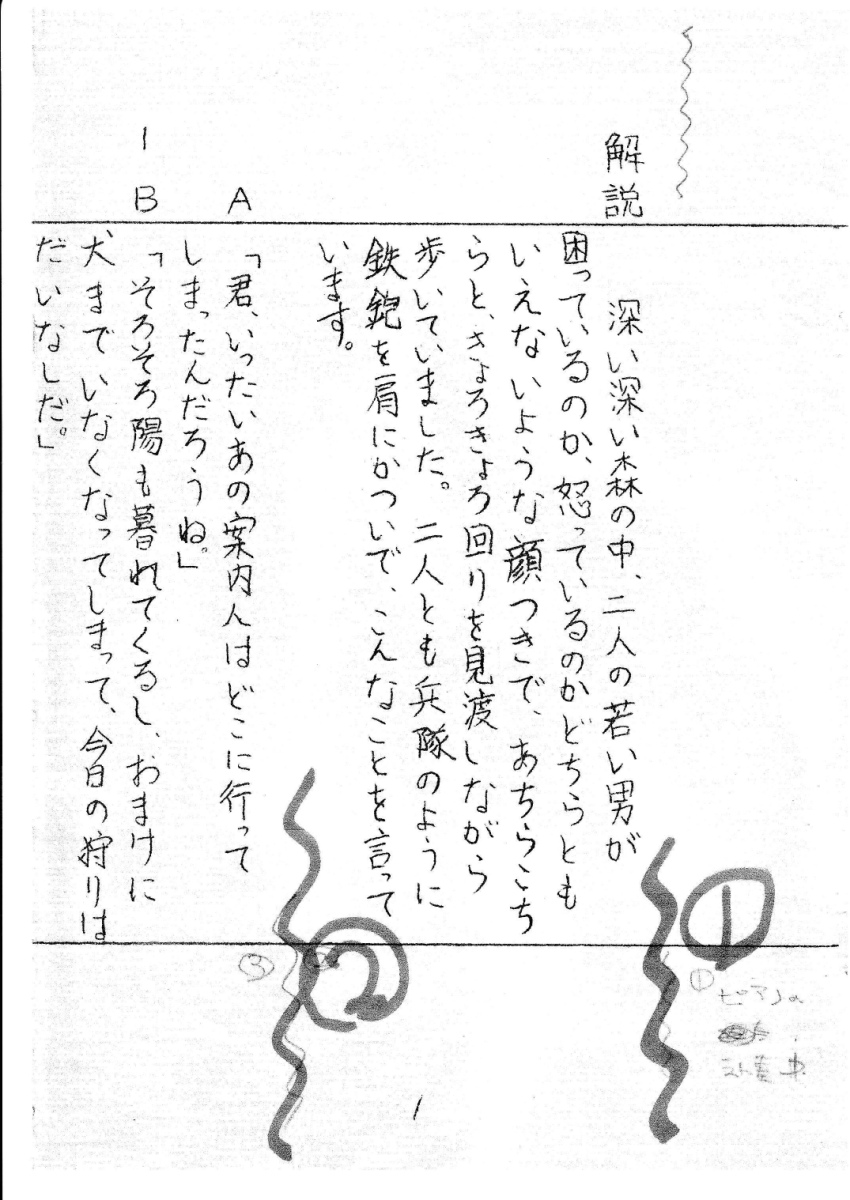 解説
深い深い森の中、二人の若い男が
困っているのか、怒っているのかどちらとも
いえないような顔つきで、あちらこち
らと、きょろきょろ回りを見渡しながら
歩いていました。二人とも兵隊のように
鉄鉋を肩にかついで、こんなことを言って
います。
A
「君、いったいあの案内人はどこに行って
しまったんだろうね。」
1
B
「そろそろ陽も暮れてくるし、おまけに
犬までいなくなってしまって、今日の狩りは
だいなしだ。」
①
①
ピアノ
②
③
1